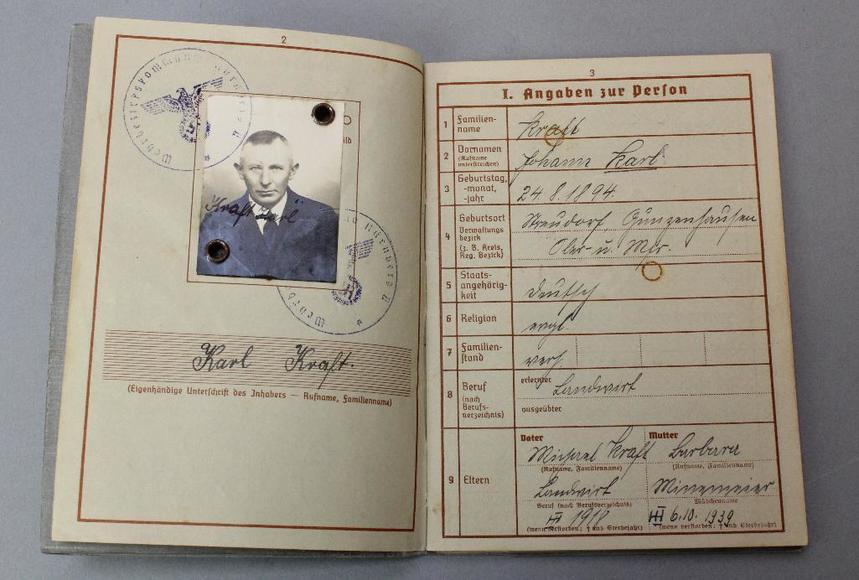 2
Kraft Karl
Karl Kraft.
(Eigenhändige Unterschrift des Inhabers — Rufname, Familienname)
3
I. Angaben zur Person
1 Familien-
name
Kraft
2 Vornamen
(Rufname
unterstreichen)
Johann Karl
3 Geburtstag,
-monat,
-jahr
24.8.1894.
4 Geburtsort
Verwaltungs-
bezirk
(z. B. Kreis,
Reg. Bezirk)
Streudorf, Gunzenhausen
Ober- u. Mfr.
5 Staats-
angehörig-
keit
deutsch
6 Religion
evgl.
7 Familien-
stand
verh.
8 Beruf
(nach
Berufs-
verzeichnis)
erlernter
Landwirt
ausgeübter
9 Eltern
Vater Mutter
Michael Kraft Barbara
(Rufname, Familienname) (Rufname, Familienname)
Landwirt
Beruf (nach Berufsverzeichnis) Mädchenname
6.10.1939
(wenn verstorben: † und Sterbejahr) (wenn verstorben: † und Sterbejahr)